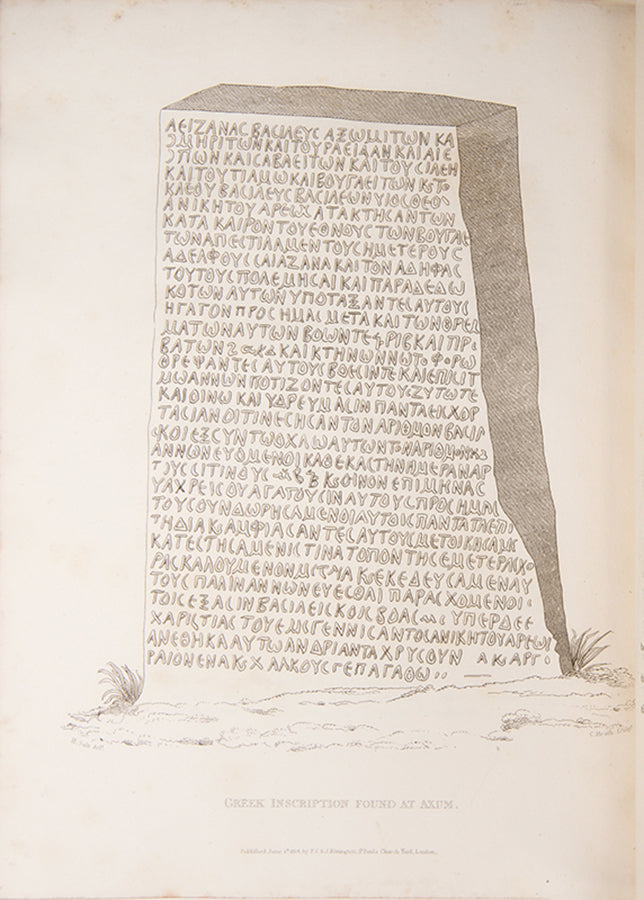 ΑΕΙΖΑΝΑϹ ΒΑϹΙΛΕΥϹ ΑΞΩΜΙΤΩΝ ΚΑ
ΟΜΗΡΙΤΩΝ ΚΑΙ ΤΟΥ ΡΑΕΙΔΑΝ ΚΑΙ ΑΙΕ
ΟΠΙΩΝ ΚΑΙ ϹΑΒΑΕΙΤΩΝ ΚΑΙ ΤΟΥ ϹΙΛΕΗ
ΚΑΙ ΤΟΥ ΤΙΑΜΩ ΚΑΙ ΒΟΥΓΑΕΙΤΩΝ
ΚΑΕΟΥ ΒΑϹΙΛΕΥϹ ΒΑϹΙΛΕΩΝ ΥΙΟϹ ΘΕΟ
ΑΝΙΚΗΤΟΥ ΑΡΕΩϹ ΑΤΑΚΤΗϹΑΝΤΩΝ
ΚΑΤΑ ΚΑΙΡΟΝ ΤΟΥ ΕΘΝΟΥϹ ΤΩΝ ΒΟΥΓΑΕ
ΤΩΝ ΑΠΕϹΤΙΛΑΜΕΝ ΤΟΥϹ ΗΜΕΤΕΡΟΥϹ
ΑΔΕΛΦΟΥϹ ϹΑΙΑΖΑΝΑ ΚΑΙ ΤΟΝ ΑΔΗΦΑϹ
ΤΟΥΤΟΥϹ ΠΟΛΕΜΗϹΑΙ ΚΑΙ ΠΑΡΑΔΕΔΩ
ΚΟΤΩΝ ΑΥΤΩΝ ΥΠΟΤΑΞΑΝΤΕϹ ΑΥΤΟΥϹ
ΗΓΑΓΟΝ ΠΡΟϹ ΗΜΑϹ ΜΕΤΑ ΚΑΙ ΤΩΝ ΘΡΕΜ
ΜΑΤΩΝ ΑΥΤΩΝ ΒΟΩΝ ΤΕ ΚΑΙ ΠΡΟ
ΒΑΤΩΝ ΚΑΙ ΚΤΗΝΩΝ
ΘΡΕΨΑΝΤΕϹ ΑΥΤΟΥϹ ΒΟΕϹΙΝ ΤΕ ΚΑΙ ΕΠΙϹΙΤ
ΜΩ ΑΝΝΩΝ ΠΟΤΙΖΟΝΤΕϹ ΑΥΤΟΥϹ ΖΥΤΩ ΤΕ
ΚΑΙ ΟΙΝΩ ΚΑΙ ΥΔΡΕΥΜΑϹΙΝ ΠΑΝΤΑ ΕΙϹ ΧΟΡ
ΤΑϹΙΑΝ ΟΙΤΙΝΕϹ ΗϹΑΝ ΤΟΝ ΑΡΙΘΜΟΝ ΒΑϹΙΛ
ϹΚΟΙ ΕΞ ϹΥΝ ΤΩ ΟΧΛΩ ΑΥΤΩΝ ΤΟΝ ΑΡΙΘΜΟΝ
ΑΝΝΩΝΕΥΟΜΕΝΟΙ ΚΑΘ ΕΚΑϹΤΗΝ ΗΜΕΡΑΝ ΑΡ
ΤΟΥϹ ϹΙΤΙΝΟΥϹ ΟΙΝΟΝ ΕΠΙ ΜΗΝΑϹ
ΑΧΡΕΙϹ ΟΥ ΑΓΑΓΟΥϹΙΝ ΑΥΤΟΥϹ ΠΡΟϹ ΗΜΑϹ
ΤΟΥϹ ΟΥΝ ΔΩΡΗϹΑΜΕΝΟΙ ΑΥΤΟΙϹ ΠΑΝΤΑ ΤΑ ΕΠΙ
ΤΗΔΙΑ ΑΜΦΙΑϹΑΝΤΕϹ ΑΥΤΟΥϹ ΜΕΤΟΙΚΗϹΑ
ΚΑΤΕϹΤΗϹΑΜΕΝ ΙϹ ΤΙΝΑ ΤΟΠΟΝ ΤΗϹ ΕΜΕΤΕΡΑϹ ΧΩ
ΡΑϹ ΚΑΛΟΥΜΕΝΟΝ ΕΚΕΛΕΥϹΑΜΕΝ ΑΥ
ΤΟΥϹ ΠΑΛΙΝ ΑΝΝΩΝΕΥΕϹΘΑΙ ΠΑΡΑϹΧΟΜΕΝΟΙ
ΤΟΙϹ ΕΞΑϹΙΝ ΒΑϹΙΛΕΙϹΚΟΙϹ ΒΟΑϹ ΥΠΕΡ ΔΕ Ε
ΧΑΡΙϹΤΙΑϹ ΤΟΥ ΕΜΕ ΓΕΝΝΗϹΑΝΤΟϹ ΑΝΙΚΗΤΟΥ ΑΡΕΩϹ
ΑΝΕΘΗΚΑ ΑΥΤΩ ΑΝΔΡΙΑΝΤΑ ΧΡΥϹΟΥΝ Α Κ ΑΡΓ
ΡΑΙΟΝ ΕΝΑ Κ ΧΑΛΚΟΥϹ Γ ΕΠ ΑΓΑΘΩ
GREEK INSCRIPTION FOUND AT AXUM.
Published June 1st by F. C. & J. Rivington, St Pauls Church Yard, London.